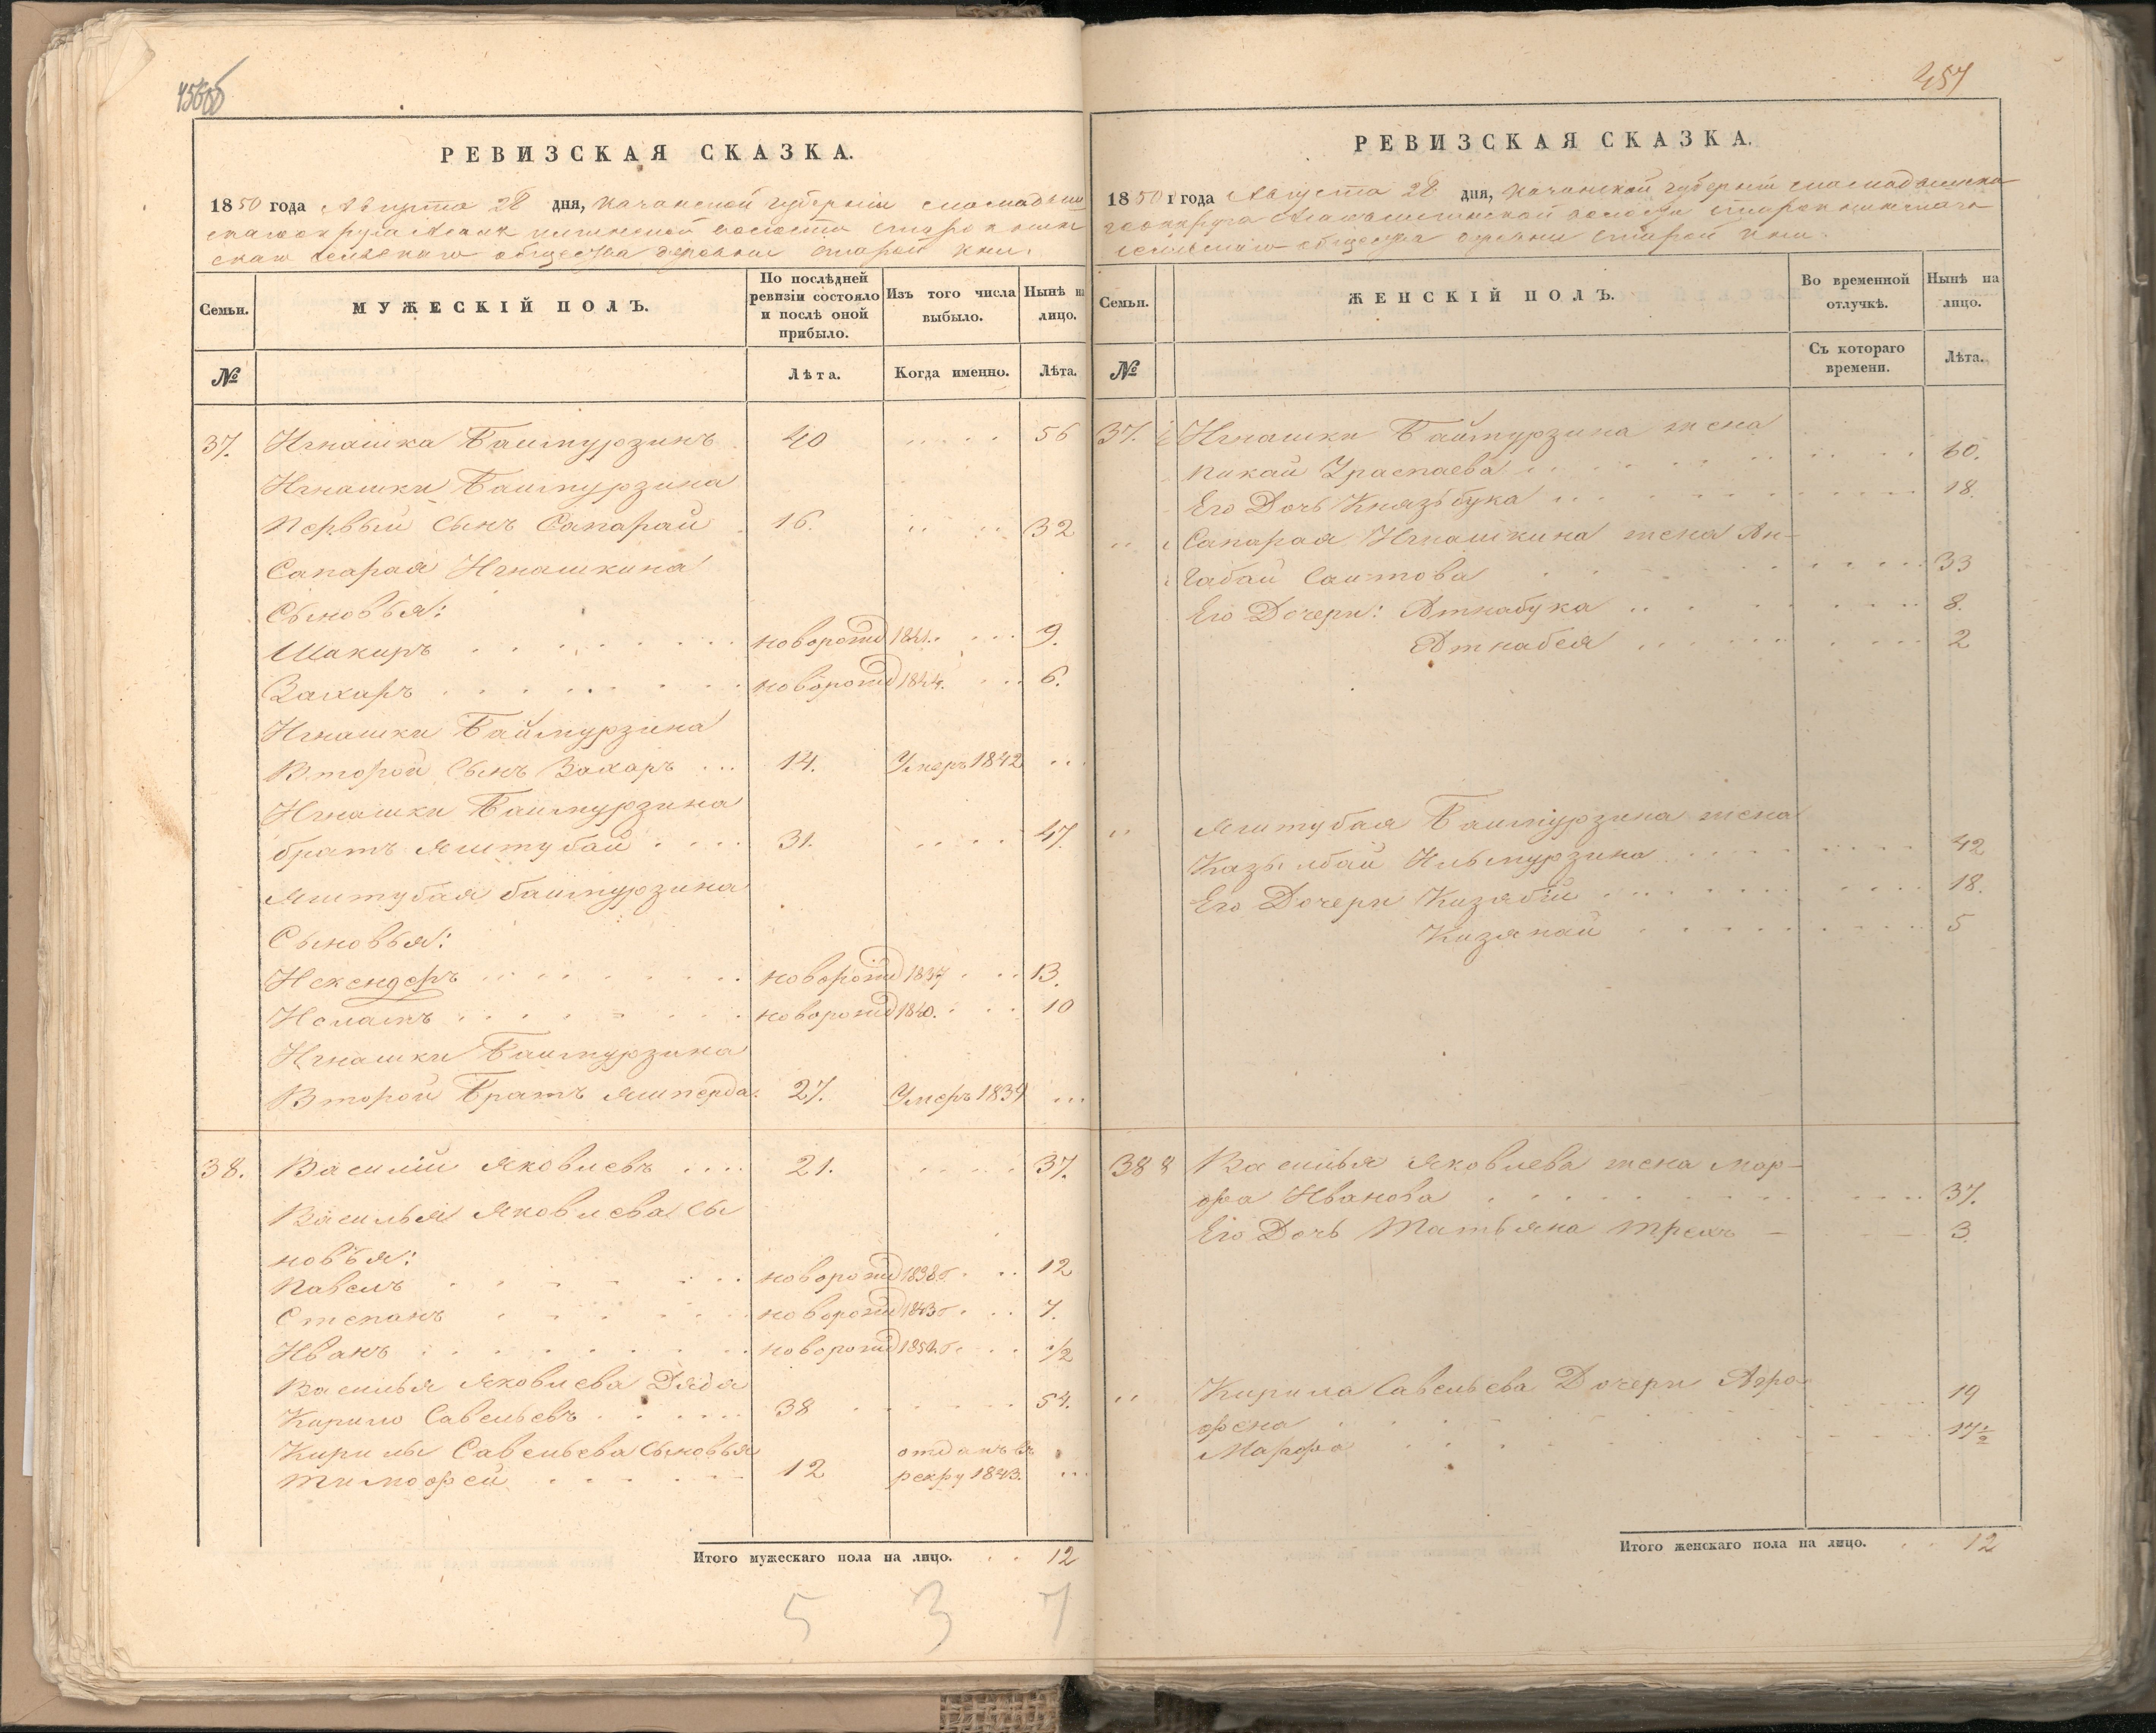 456об
РЕВИЗСКАЯ СКАЗКА.
1850 года Августа 28 дня, Казанской губерніи спасскаго
сельскаго общества деревни Старой
Семьи.
МУЖЕСКІЙ ПОЛЪ.
По послѣдней ревизіи состояло и послѣ оной прибыло.
Изъ того числа выбыло.
Нынѣ на лицо.
№
Лѣта.
Когда именно.
Лѣта.
37. Игнашка Баймурзинъ 40 56
Игнашки Баймурзина
Первый Сынъ Сапарай 16. 32
Сапарая Игнашкина
Сыновья:
Шакиръ новорожд 1841. 9.
Захаръ новорожд 1844. 6.
Игнашки Баймурзина
Второй Сынъ Захаръ 14. Умеръ 1842
Игнашки Баймурзина
братъ Яштубай 31. 47.
Яштубая баймурзина
Сыновья:
Искендеръ новорожд 1837 13.
новорожд 1840. 10
Игнашки Баймурзина
Второй Братъ Яшперда 27. Умеръ 1839
38. Василій Яковлевъ 21. 37.
Василья Яковлева Сы
новья:
Павелъ новорожд 1838 12
Степанъ новорожд 1843 7.
Иванъ новорожд 1/2
Василья Яковлева Дядя
Кирило Савельевъ 38 54.
Кирилы Савельева Сыновья отданъ въ
Тимофей 12 рекру 1843.
Итого мужескаго пола на лицо. 12
5 3 7
457
РЕВИЗСКАЯ СКАЗКА.
1850 года Августа 28 дня, Казанской губерніи
сельскаго общества деревни Старой
Семьи.
ЖЕНСКІЙ ПОЛЪ.
Во временной отлучкѣ.
Нынѣ на лицо.
№
Съ котораго времени.
Лѣта.
37. Игнашки Баймурзина жена
Пикай Ураспаева 60.
Его Дочь Князьбука 18.
Сапарая Игнашкина жена Ан-
габай Саитова 33
Его Дочери: Атнабука 8.
Атнабея 2
Яштубая Баймурзина жена
Казылбай Ильмурзина 42
Его Дочери Кизябій 18.
Кизякай 5
38 Василья Яковлева жена Мар-
фа Иванова 37.
Его Дочь Татьяна трехъ 3
Кирила Савельева Дочери Афро-
19
Марфа 17 1/2
Итого женскаго пола на лицо. 12